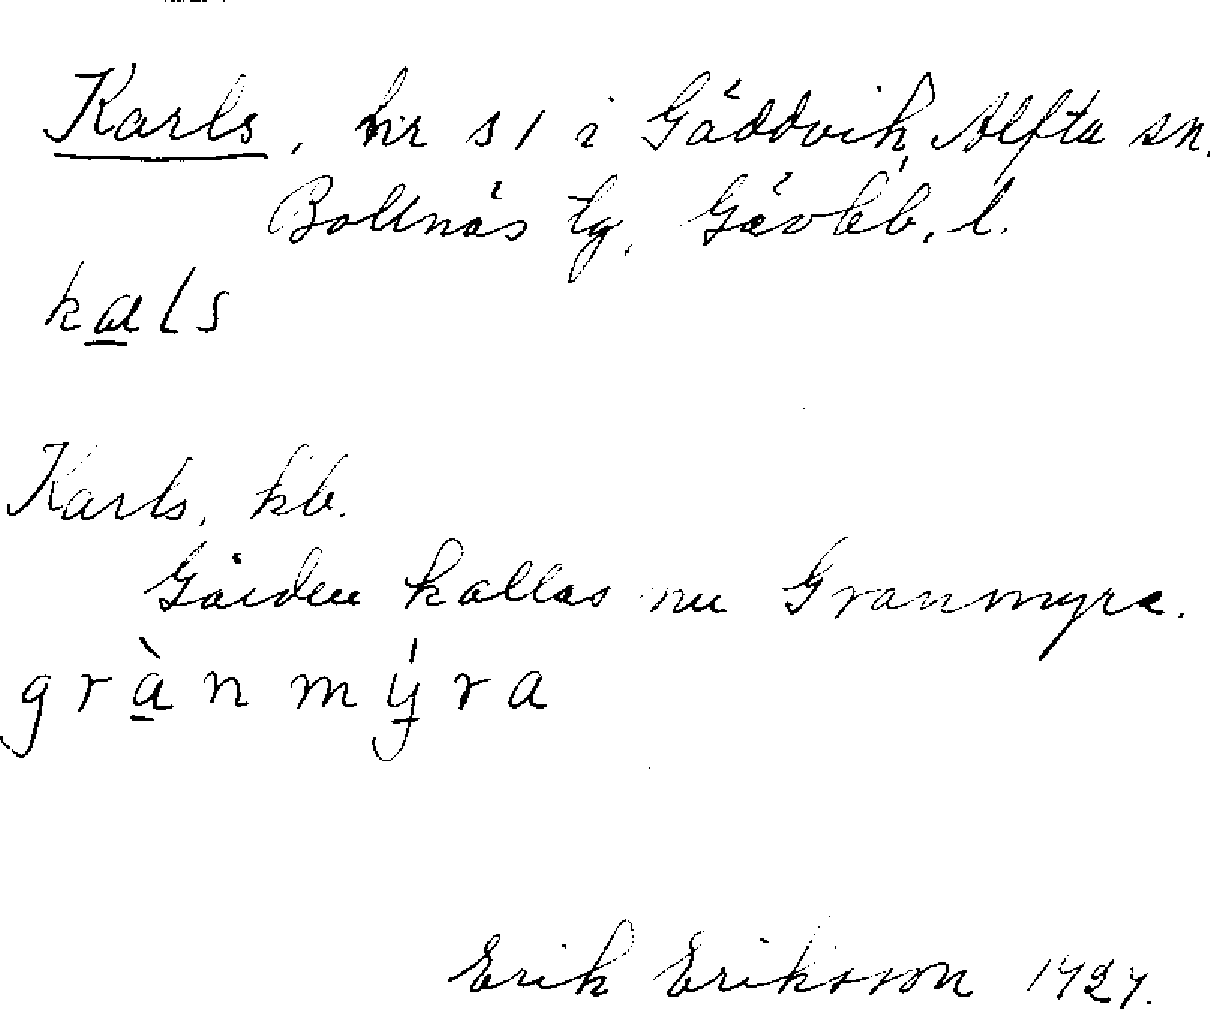 Karls, hr s1 i Gäddvik, Alfta sn.
Bollnäs tg, Gävleb. l.
kals
Karls, kb.
Gården kallas nu Granmyra.
grànmýra
Erik Eriksson 1927.